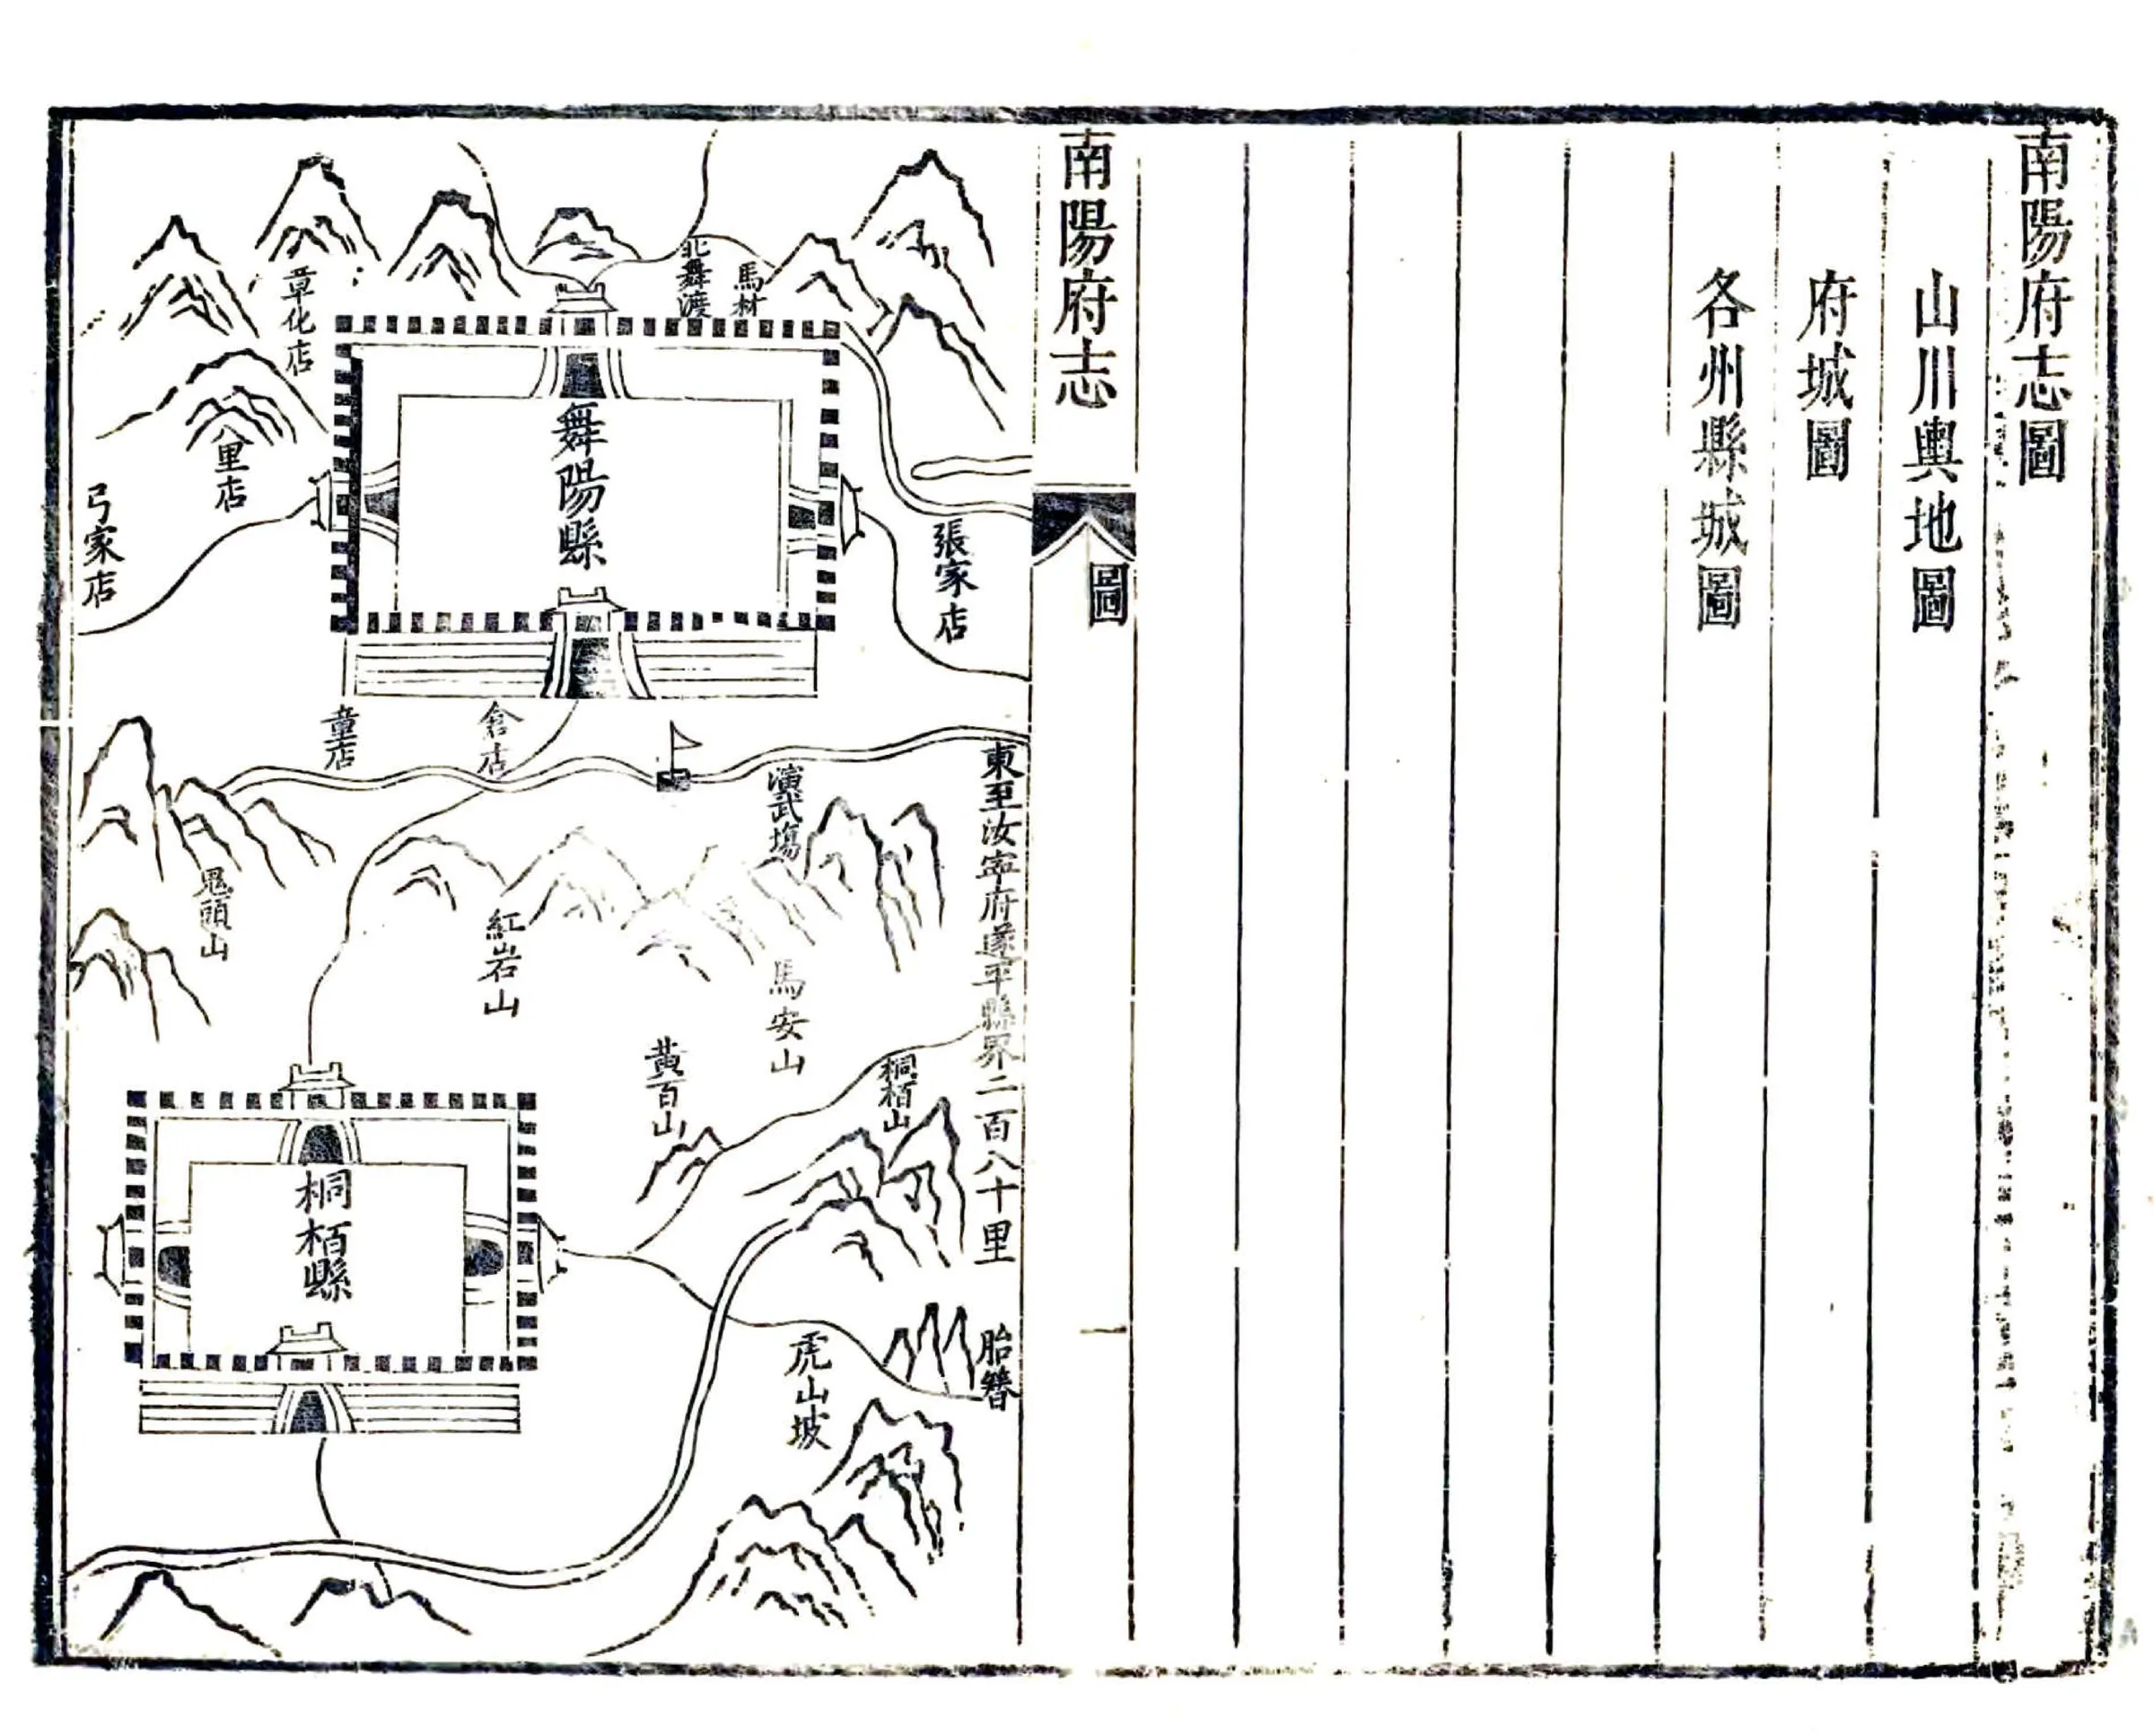 南陽府志圖
山川輿地圖
府城圖
各州縣城圖
南陽府志
圖
一
東至汝寧府遂平縣界二百八十里
胎簪
張家店
桐栢山
馬村
北舞渡
演武塲
馬安山
虎山坡
黃百山
舞陽縣
倉店
紅岩山
童店
桐栢縣
章化店
八里店
鬼頭山
弓家店